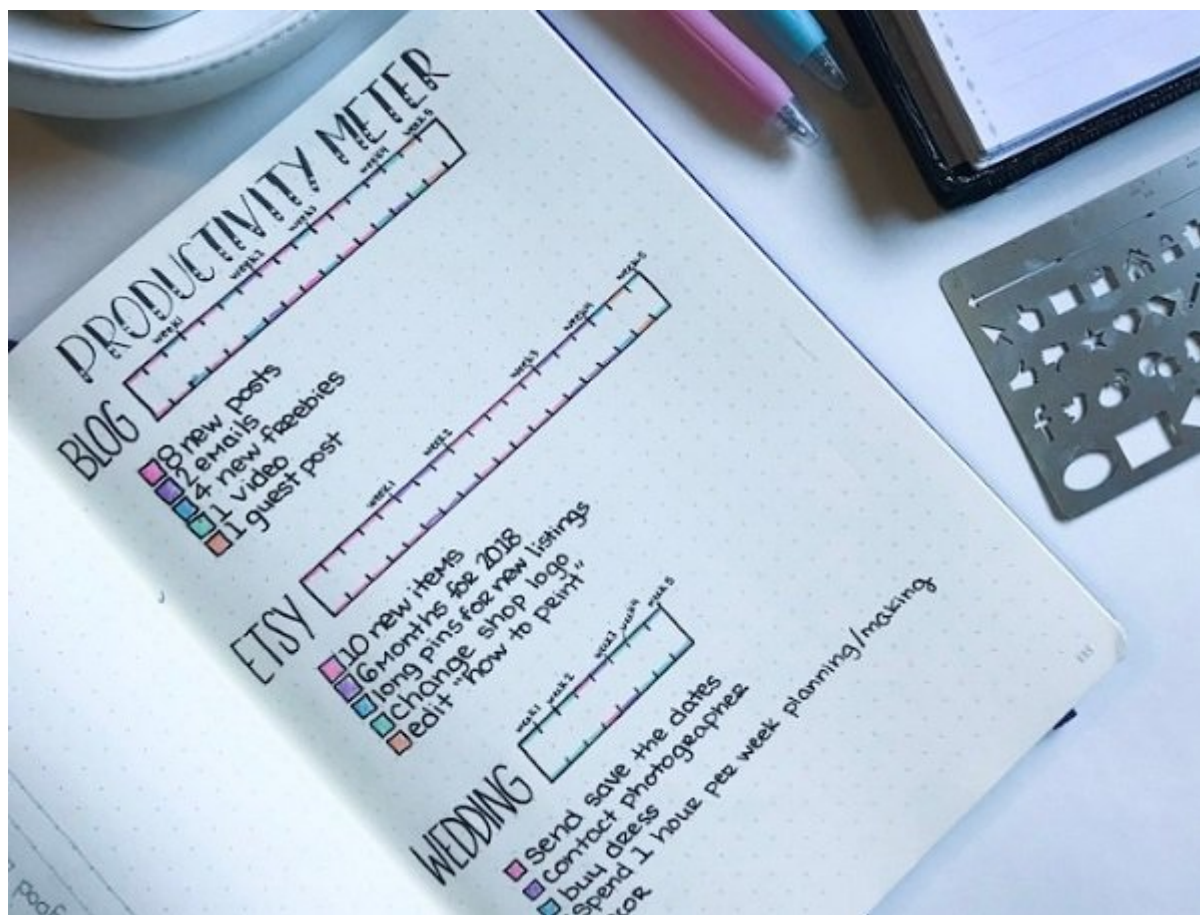 PRODUCTIVITY METER
week1 week2 week3 week4 week5
BLOG
8 new posts
2 emails
4 new freebies
1 video
1 guest post
week1 week2 week3 week4 week5
ETSY
10 new items
6 months for 2018
long pins for new listings
change shop logo
edit "how to print"
week1 week2 week3 week4 week5
WEDDING
send save the dates
contact photographer
buy dress
spend 1 hour per week planning/making